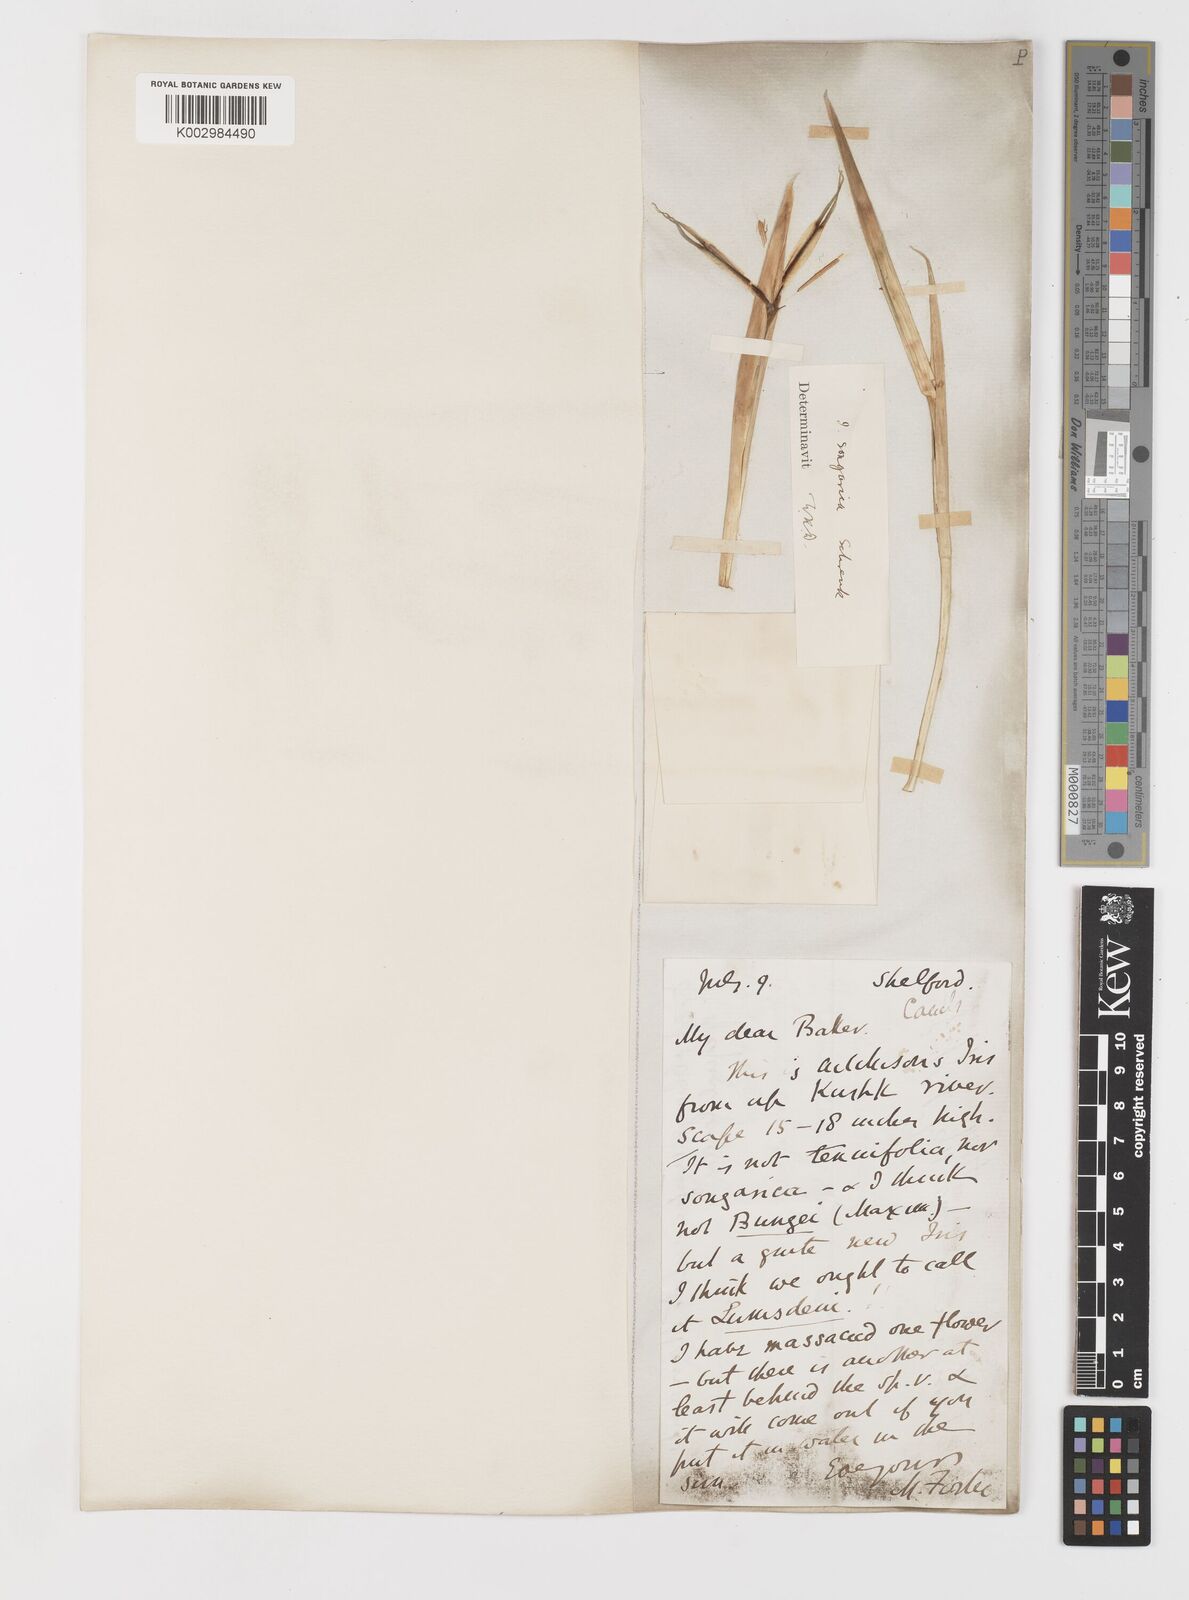 ROYAL BOTANIC GARDENS KEW
K002984490
P
I. songarica Schrenk
Determinavit WRD.
July. 9. Shelford.
Cambs
My dear Baker.
This is Aitchison's Iris
from up Kushk river.
Scape 15-18 inches high.
It is not tenuifolia, nor
songarica - & I think
not Bungei (Maxim.) -
but a quite new Iris
I think we ought to call
it Lumsdeni.
I have massacred one flower
- but there is another at
least behind the sp. v. &
it will come out if you
put it in water in the
sun. Ever yours
M. Foster
inches
Density
Don Williams
centimeters
M000827
Kew
Royal Botanic Gardens
copyright reserved
0 1 2 3 4 5 6 7 8 9 10
cm